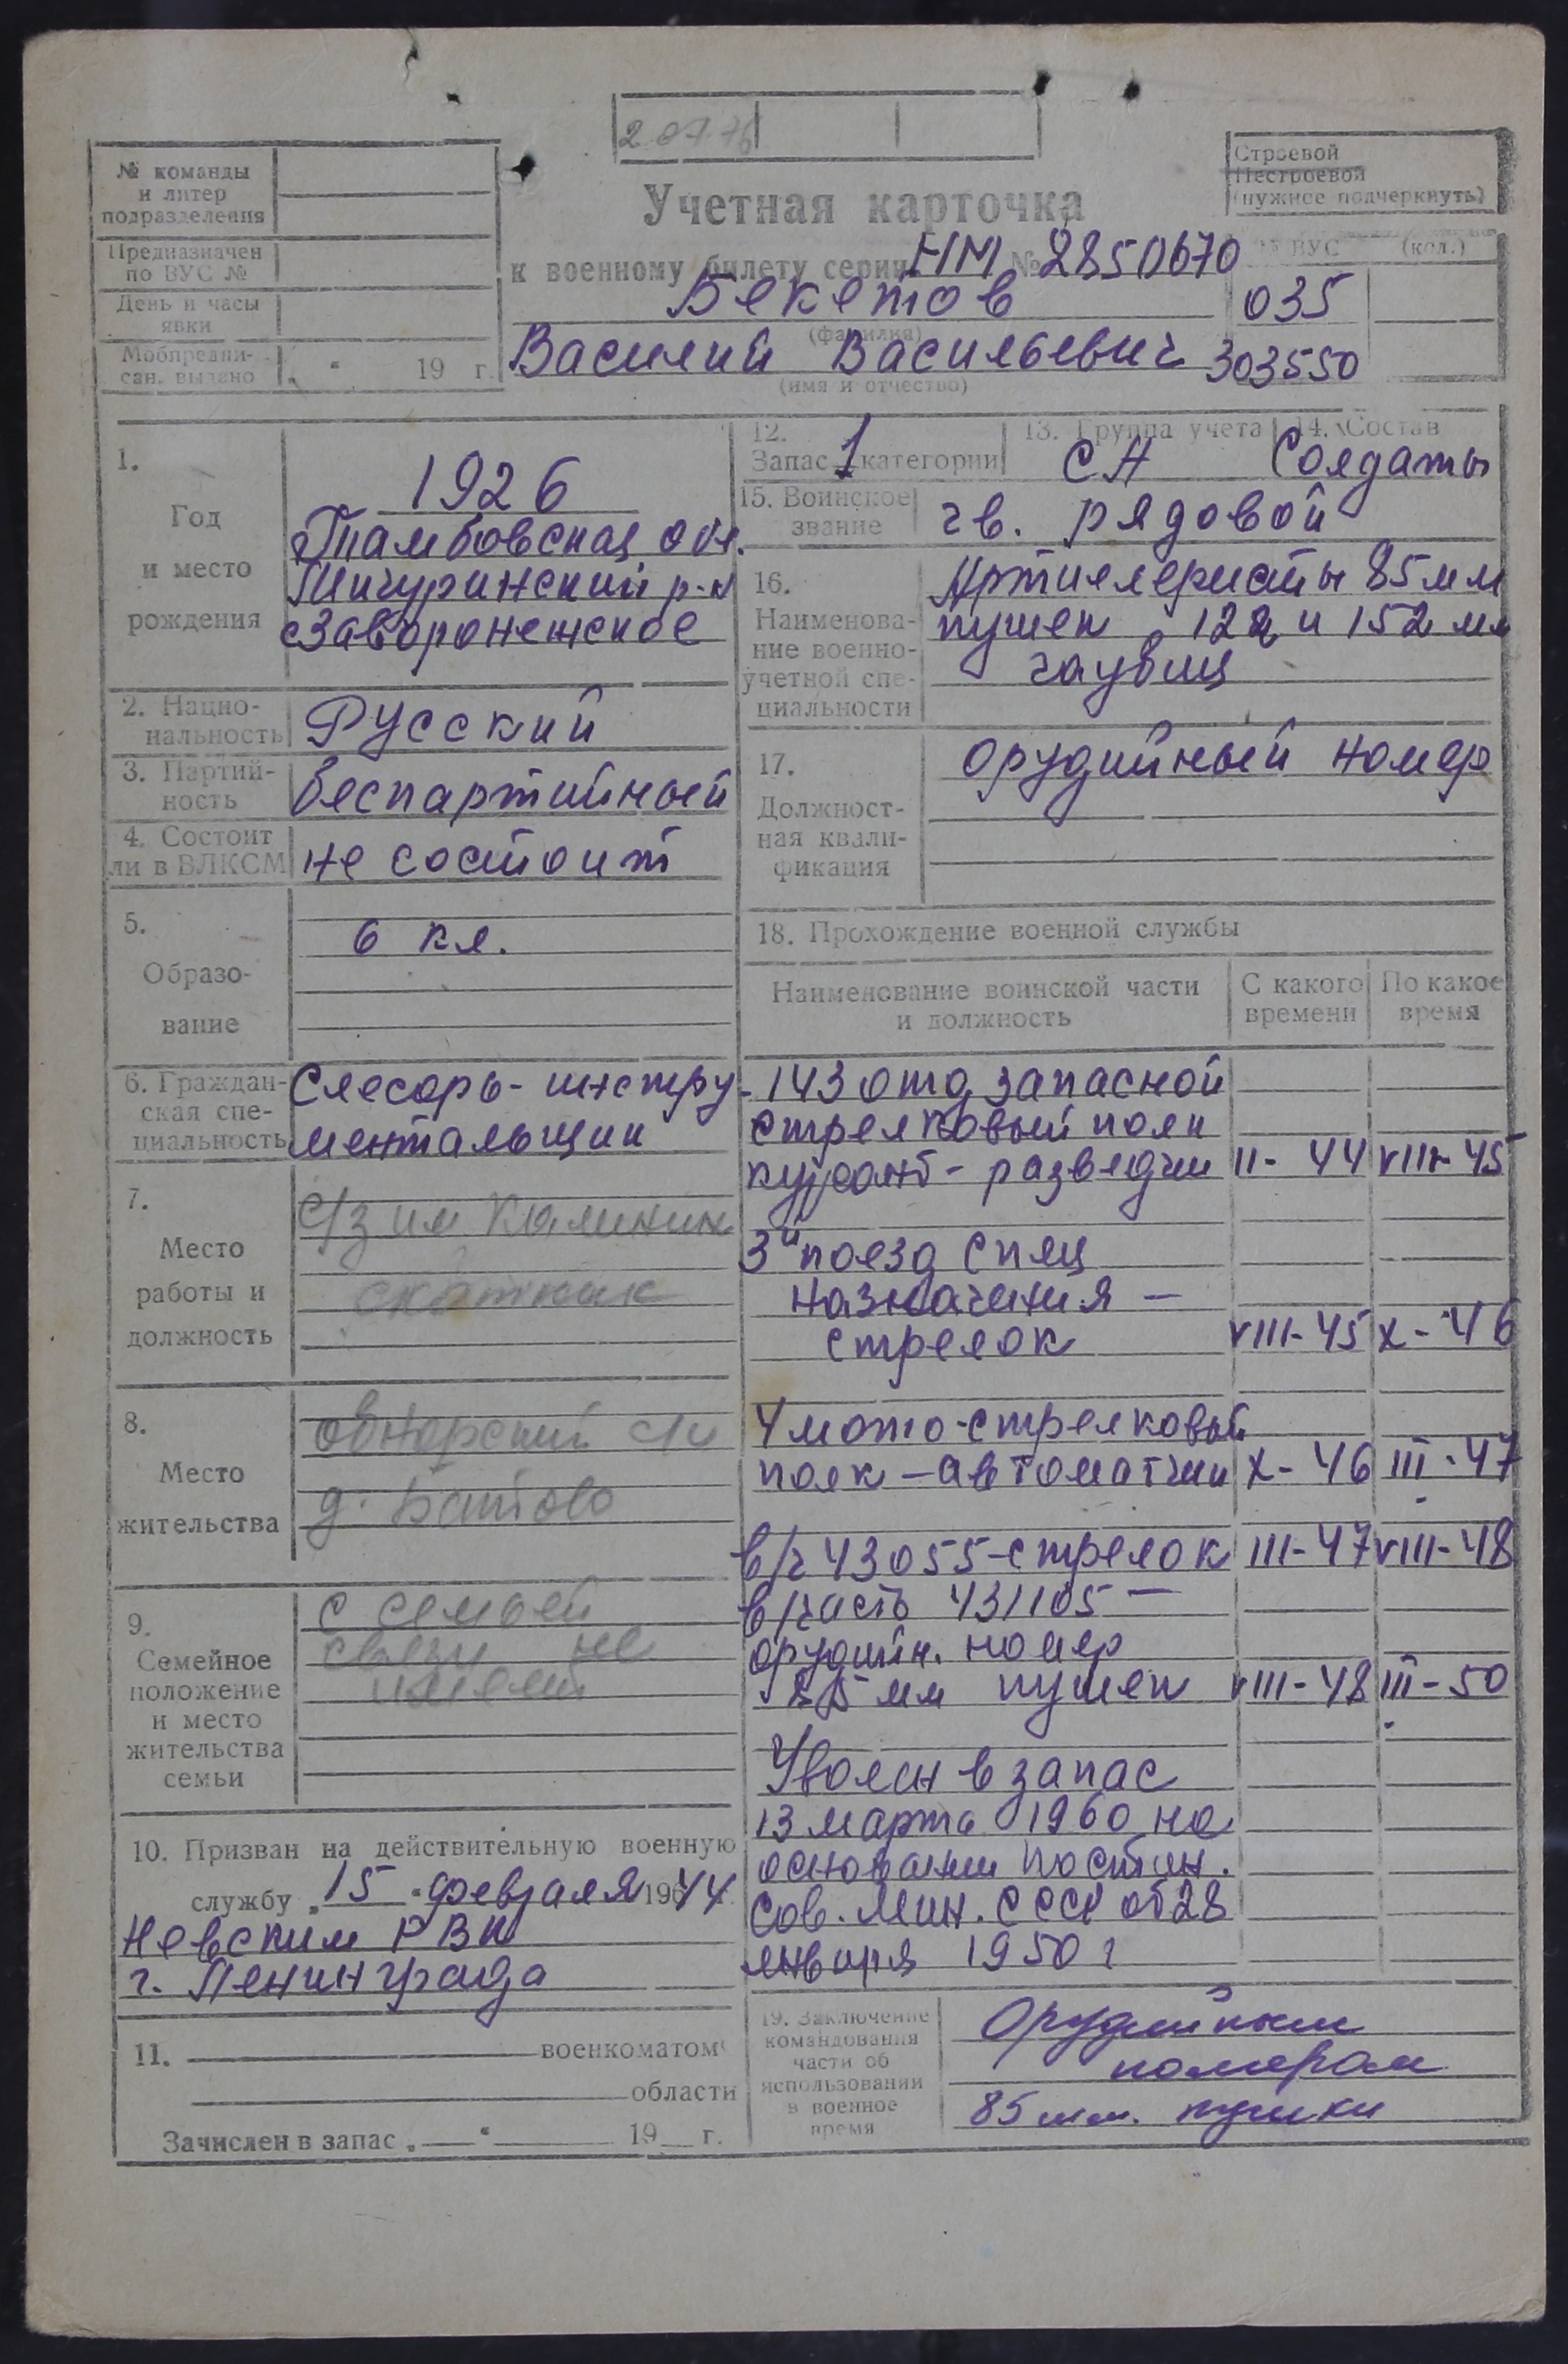 2 07 76
№ команды
и литер
подразделения
Предназначен
по ВУС №
День и часы
явки
Мобпредпи-
сан. выдано „ “ 19 г.
Учетная карточка
к военному билету серии НМ № 2850670
Бекетов
(фамилия)
Василий Васильевич
(имя и отчество)
Строевой
Нестроевой
(нужное подчеркнуть)
ВУС (код.)
035
303550
1.
Год
и место
рождения
1926
Тамбовская обл.
Мичуринский р-н
с Заворонежское
2. Нацио-
нальность
Русский
3. Партий-
ность
беспартийный
4. Состоит
ли в ВЛКСМ
не состоит
5.
Образо-
вание
6 кл.
6. Граждан-
ская спе-
циальность
Слесарь-инстру-
ментальщик
7.
Место
работы и
должность
с/з им Калинин
скотник
8.
Место
жительства
Обнорский с/с
д. Батово
9.
Семейное
положение
и место
жительства
семьи
с семьей
связи не
имеет
10. Призван на действительную военную
службу „15“ февраля 19644
Невским РВК
г. Ленинграда
11. военкоматом
области
Зачислен в запас „ “ 19 г.
12.
Запас 1 категории
13. Группа учета
СА
14. Состав
Солдаты
15. Воинское
звание
гв. рядовой
16.
Наименова-
ние военно-
учетной спе-
циальности
Артиллеристы 85 мм
пушек, 122 и 152 мм
гаубиц
17.
Должност-
ная квали-
фикация
орудийный номер
18. Прохождение военной службы
Наименование воинской части
и должность
С какого
времени
По какое
время
143 отд запасной
стрелковый полк
курсант-разведчик II-44 VIII-45
3й поезд спец
назначения —
стрелок VIII-45 X-46
4 мото-стрелковый
полк — автоматчик X-46 III-47
в/ч 43055-стрелок III-47 VIII-48
в/часть 431105 —
орудийн. номер
85 мм пушек VIII-48 III-50
Уволен в запас
13 марта 1960 на
основании постан.
Сов. Мин. СССР от 28
января 1950 г
19. Заключение
командования
части об
использовании
в военное
время
Орудийным
номером
85 мм. пушки